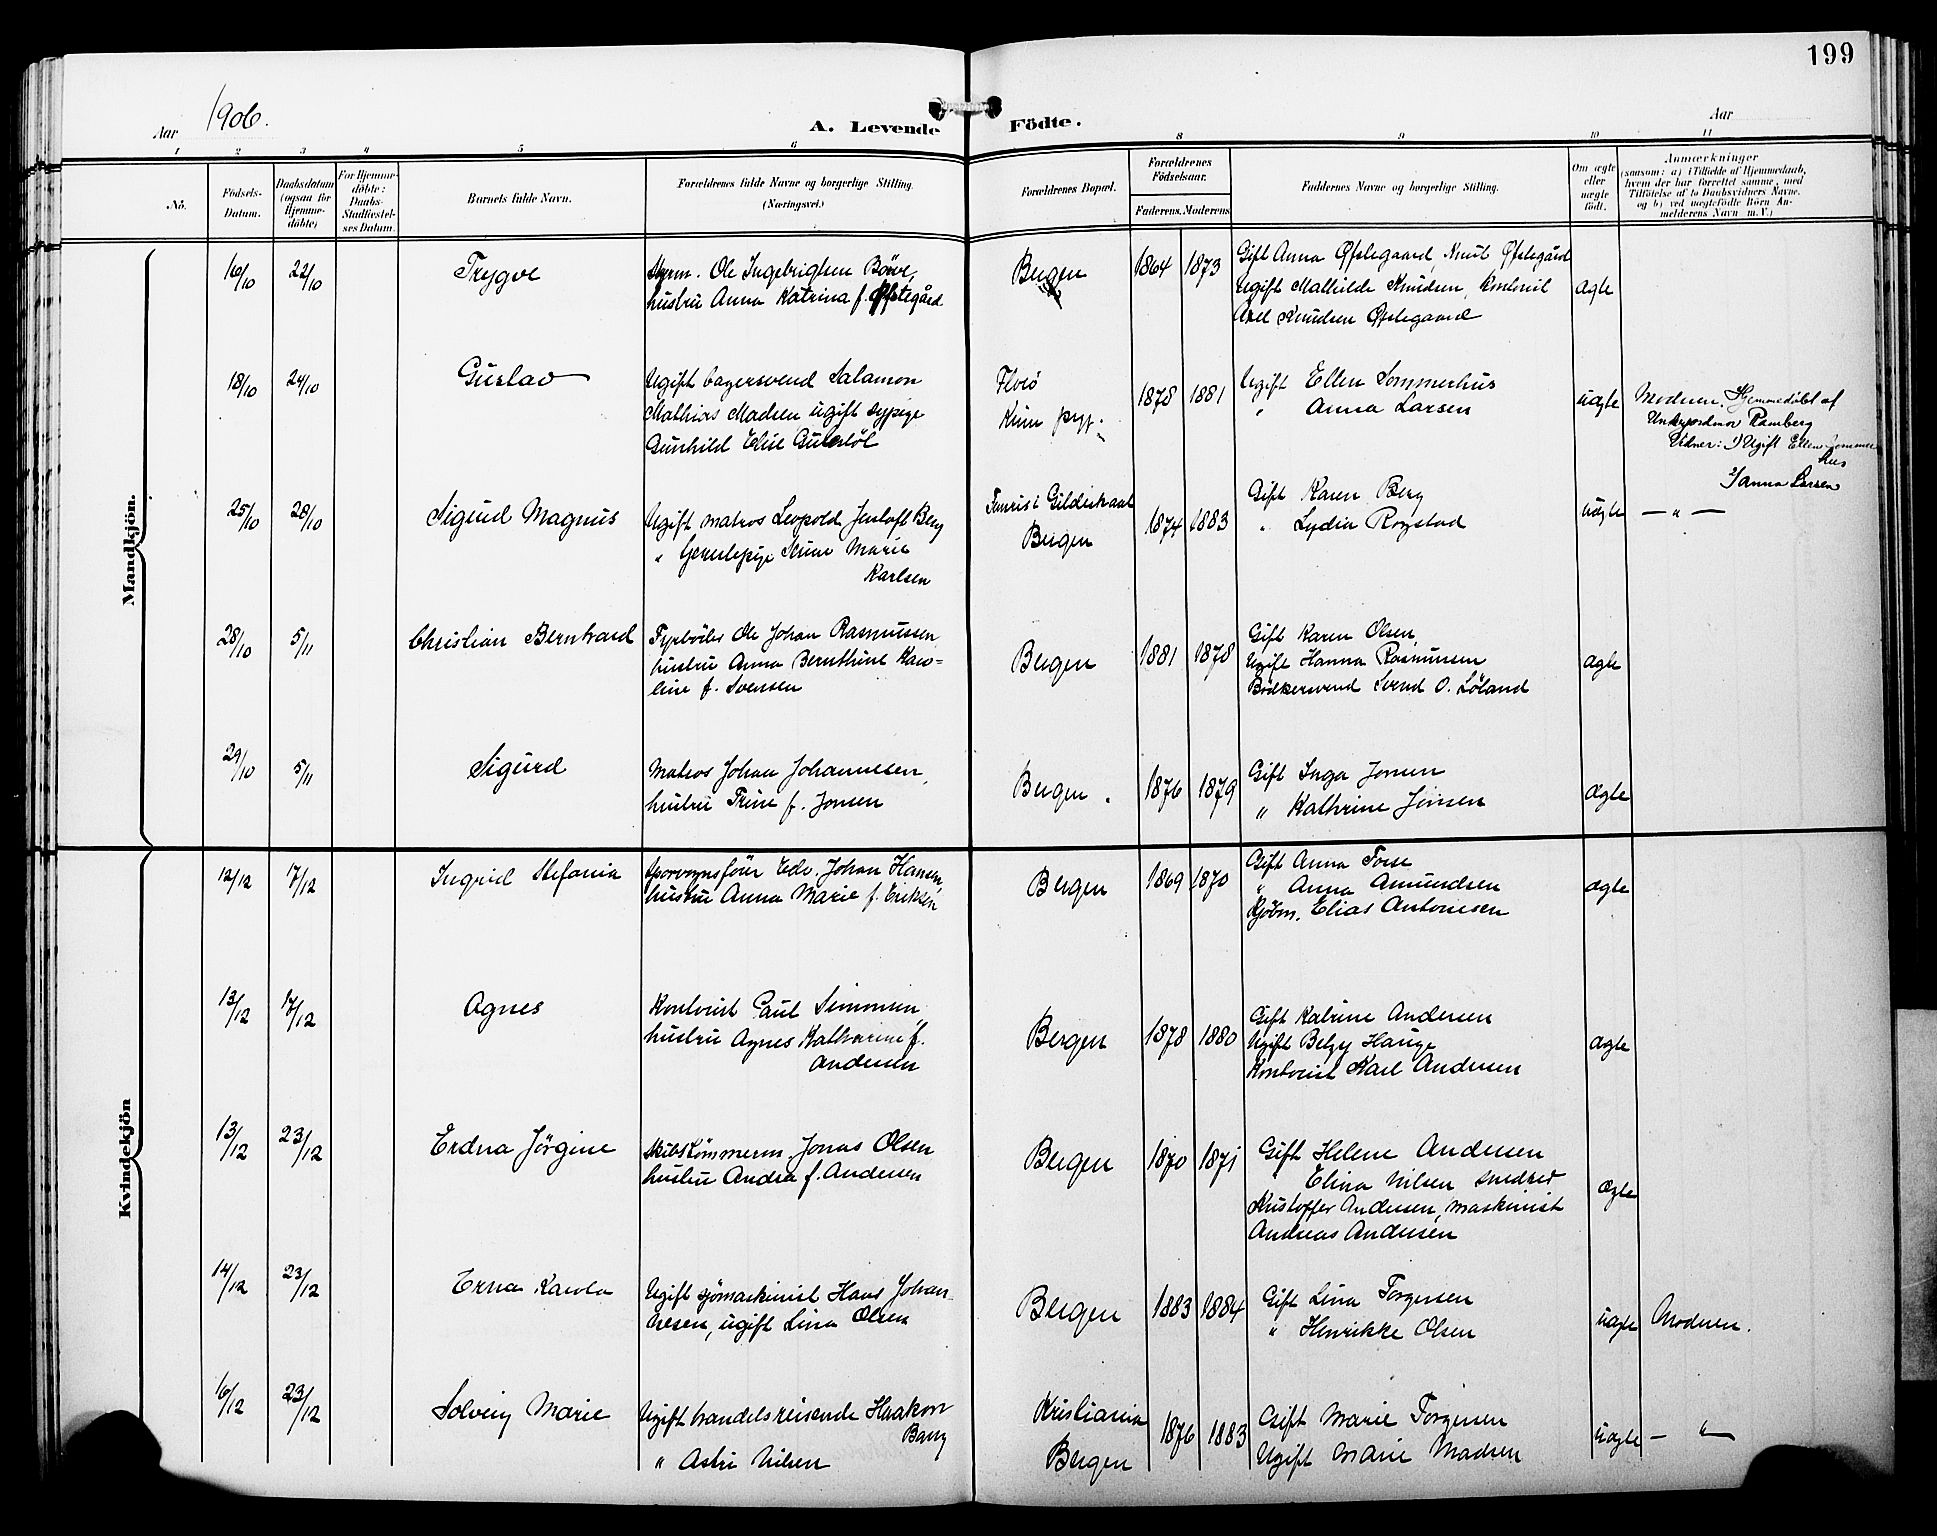 199
Aar 1906.
A. Levende Födte.
Aar
1 2 3 4 5 6 8 9 10 11
No.
Födsels-Datum.
Daabsdatum (ogsaa for Hjemme-döbte)
For Hjemme-döbte: Daabs-Stadfæstel-ses Datum.
Barnets fulde Navn.
Forældrenes fulde Navne og borgerlige Stilling. (Næringsvei.)
Forældrenes Bopæl.
Forældrenes Födselsaar.
Faderens. Moderens
Faddernes Navne og borgerlige Stilling.
Om ægte eller uægte födt.
Anmærkninger
(saasom: a) i Tilfælde af Hjemmedaab, hvem der har forrettet samme, med Tilföielse af to Daabsvidners Navne, og b) ved uægtefödte Börn An-melderens Navn m.V.)
Mandkjön.
16/10 22/10 Trygve
Styrm. Ole Ingebrigtsen Börve,
hustru Anna Katrina f. Øfstegård
Bergen 1864 1873
Gift Anna Øfstegaard, Knut Øfstegård
Ugift Mathilde Knudsen, kontorist
Axel Knudsen Øfstegaard
ægte
18/10 24/10 Gustav
Ugift bagersvend Salamon
Mathias Madsen ugift sypige
Gunhild Elise
Florö
Kinn prgj.
1878 1881
Ugift Ellen Sommerhus
" Anna Larsen
uægte
Moderen. Hjemmedöbt af
Ramberg
Vidner: 1) Ugift Ellen Sommer
hus
2) Anna Larsen
25/10 28/10 Sigurd Magnus
Ugift matros Leopold Jentoft Berg
" Marie
Karlsen
i Gildeskaal
Bergen
1874 1883
Gift Karen Berg
" Lydia Rogstad
uægte — " —
28/10 5/11 Christian Bernhard
Fyrböder Ole Johan Rasmussen
hustru Anna Bernthine Karo-
line f. Svensen
Bergen 1881 1878
Gift Karen Olsen
Ugift Hanna Rasmussen
Bödkersvend Svend O. Löland
ægte
29/10 5/11 Sigurd
Matros Johan Johannesen,
hustru Trine f. Jonsen
Bergen. 1876 1879
Gift Inga Jonsen
" Kathrine Jonsen
ægte
Kvindekjön
12/12 17/12 Ingrid Stefania
Sporvognsför. Edv. Johan Hansen,
hustru Anna Marie f. Eriksen
Bergen 1869 1870
Gift Anna
" Anna Amundsen
Kjöbm. Elias Antonisen
ægte
13/12 17/12 Agnes
Kontorist Paul Simonsen
hustru Agnes Katharine f.
Andersen
Bergen 1878 1880
Gift Katrine Andersen
Ugift Betzy Hauge
Kontorist Karl Andersen
ægte
13/12 23/12 Erdna Jörgine
Skibstömmerm. Jonas Olsen
hustru Andrea f. Andersen
Bergen 1870 1871
Gift Helene Andersen
" Elina Nilsen smedsv
Kristoffer Andersen, maskinist
Andreas Andersen
ægte
14/12 23/12 Erna Karola
Ugift sjömaskinist Hans Johan-
nesen, ugift Lina Olsen
Bergen 1883 1884
Gift Lina Torgersen
" Henrikke Olsen
uægte Moderen.
16/12 23/12 Solveig Marie
Ugift handelsreisende Haakon
Bang
" Astri Nilsen
Kristiania
Bergen
1876 1883
Gift Marie Torgersen
Ugift Marie Madsen
uægte — " —